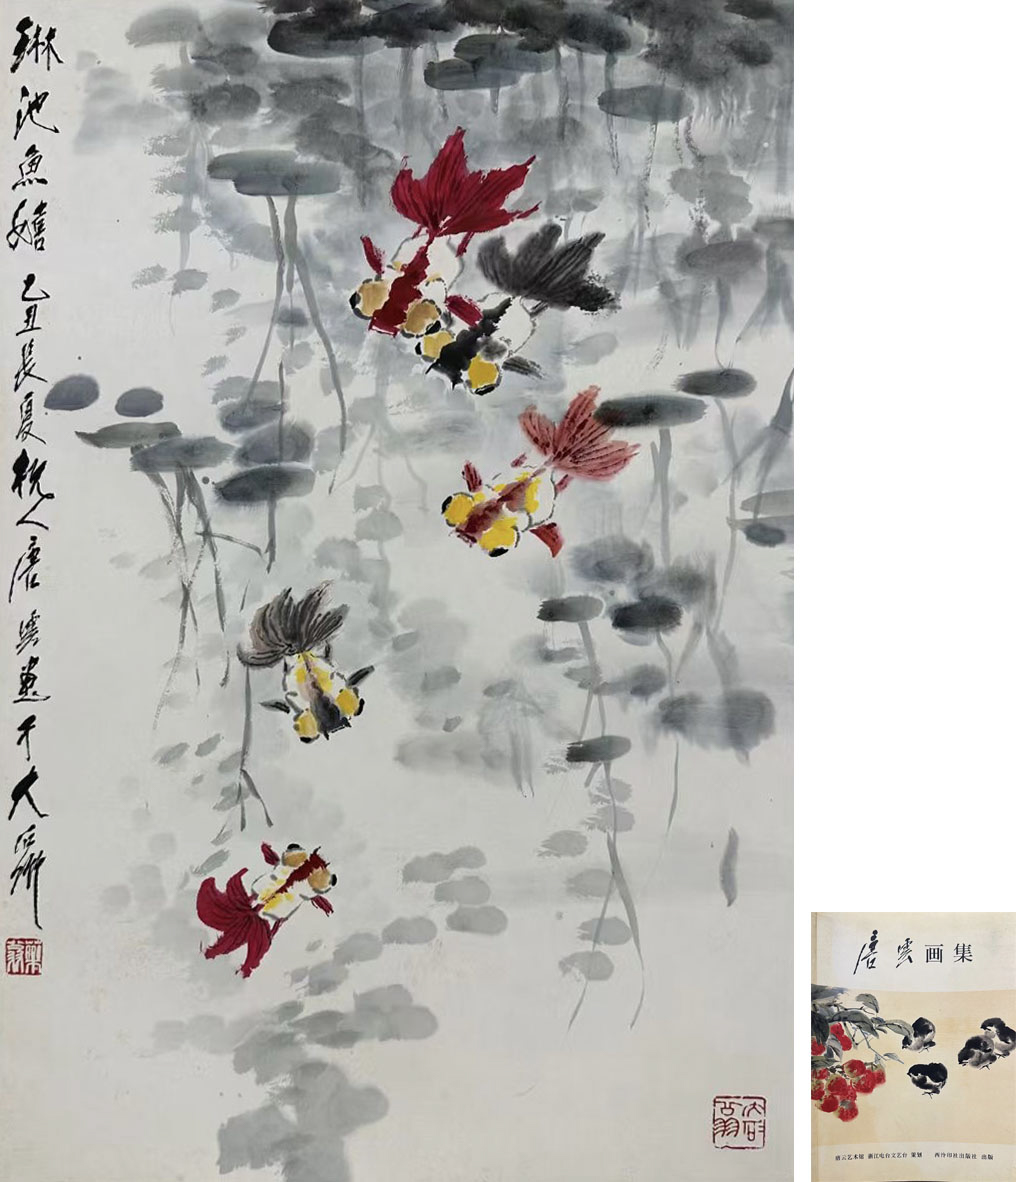 琳池魚嬉 乙丑長夏杭人唐雲畫于大石齋
藥翁
唐雲画集
唐云艺术馆 浙江电台文艺台 策划 西泠印社出版社 出版